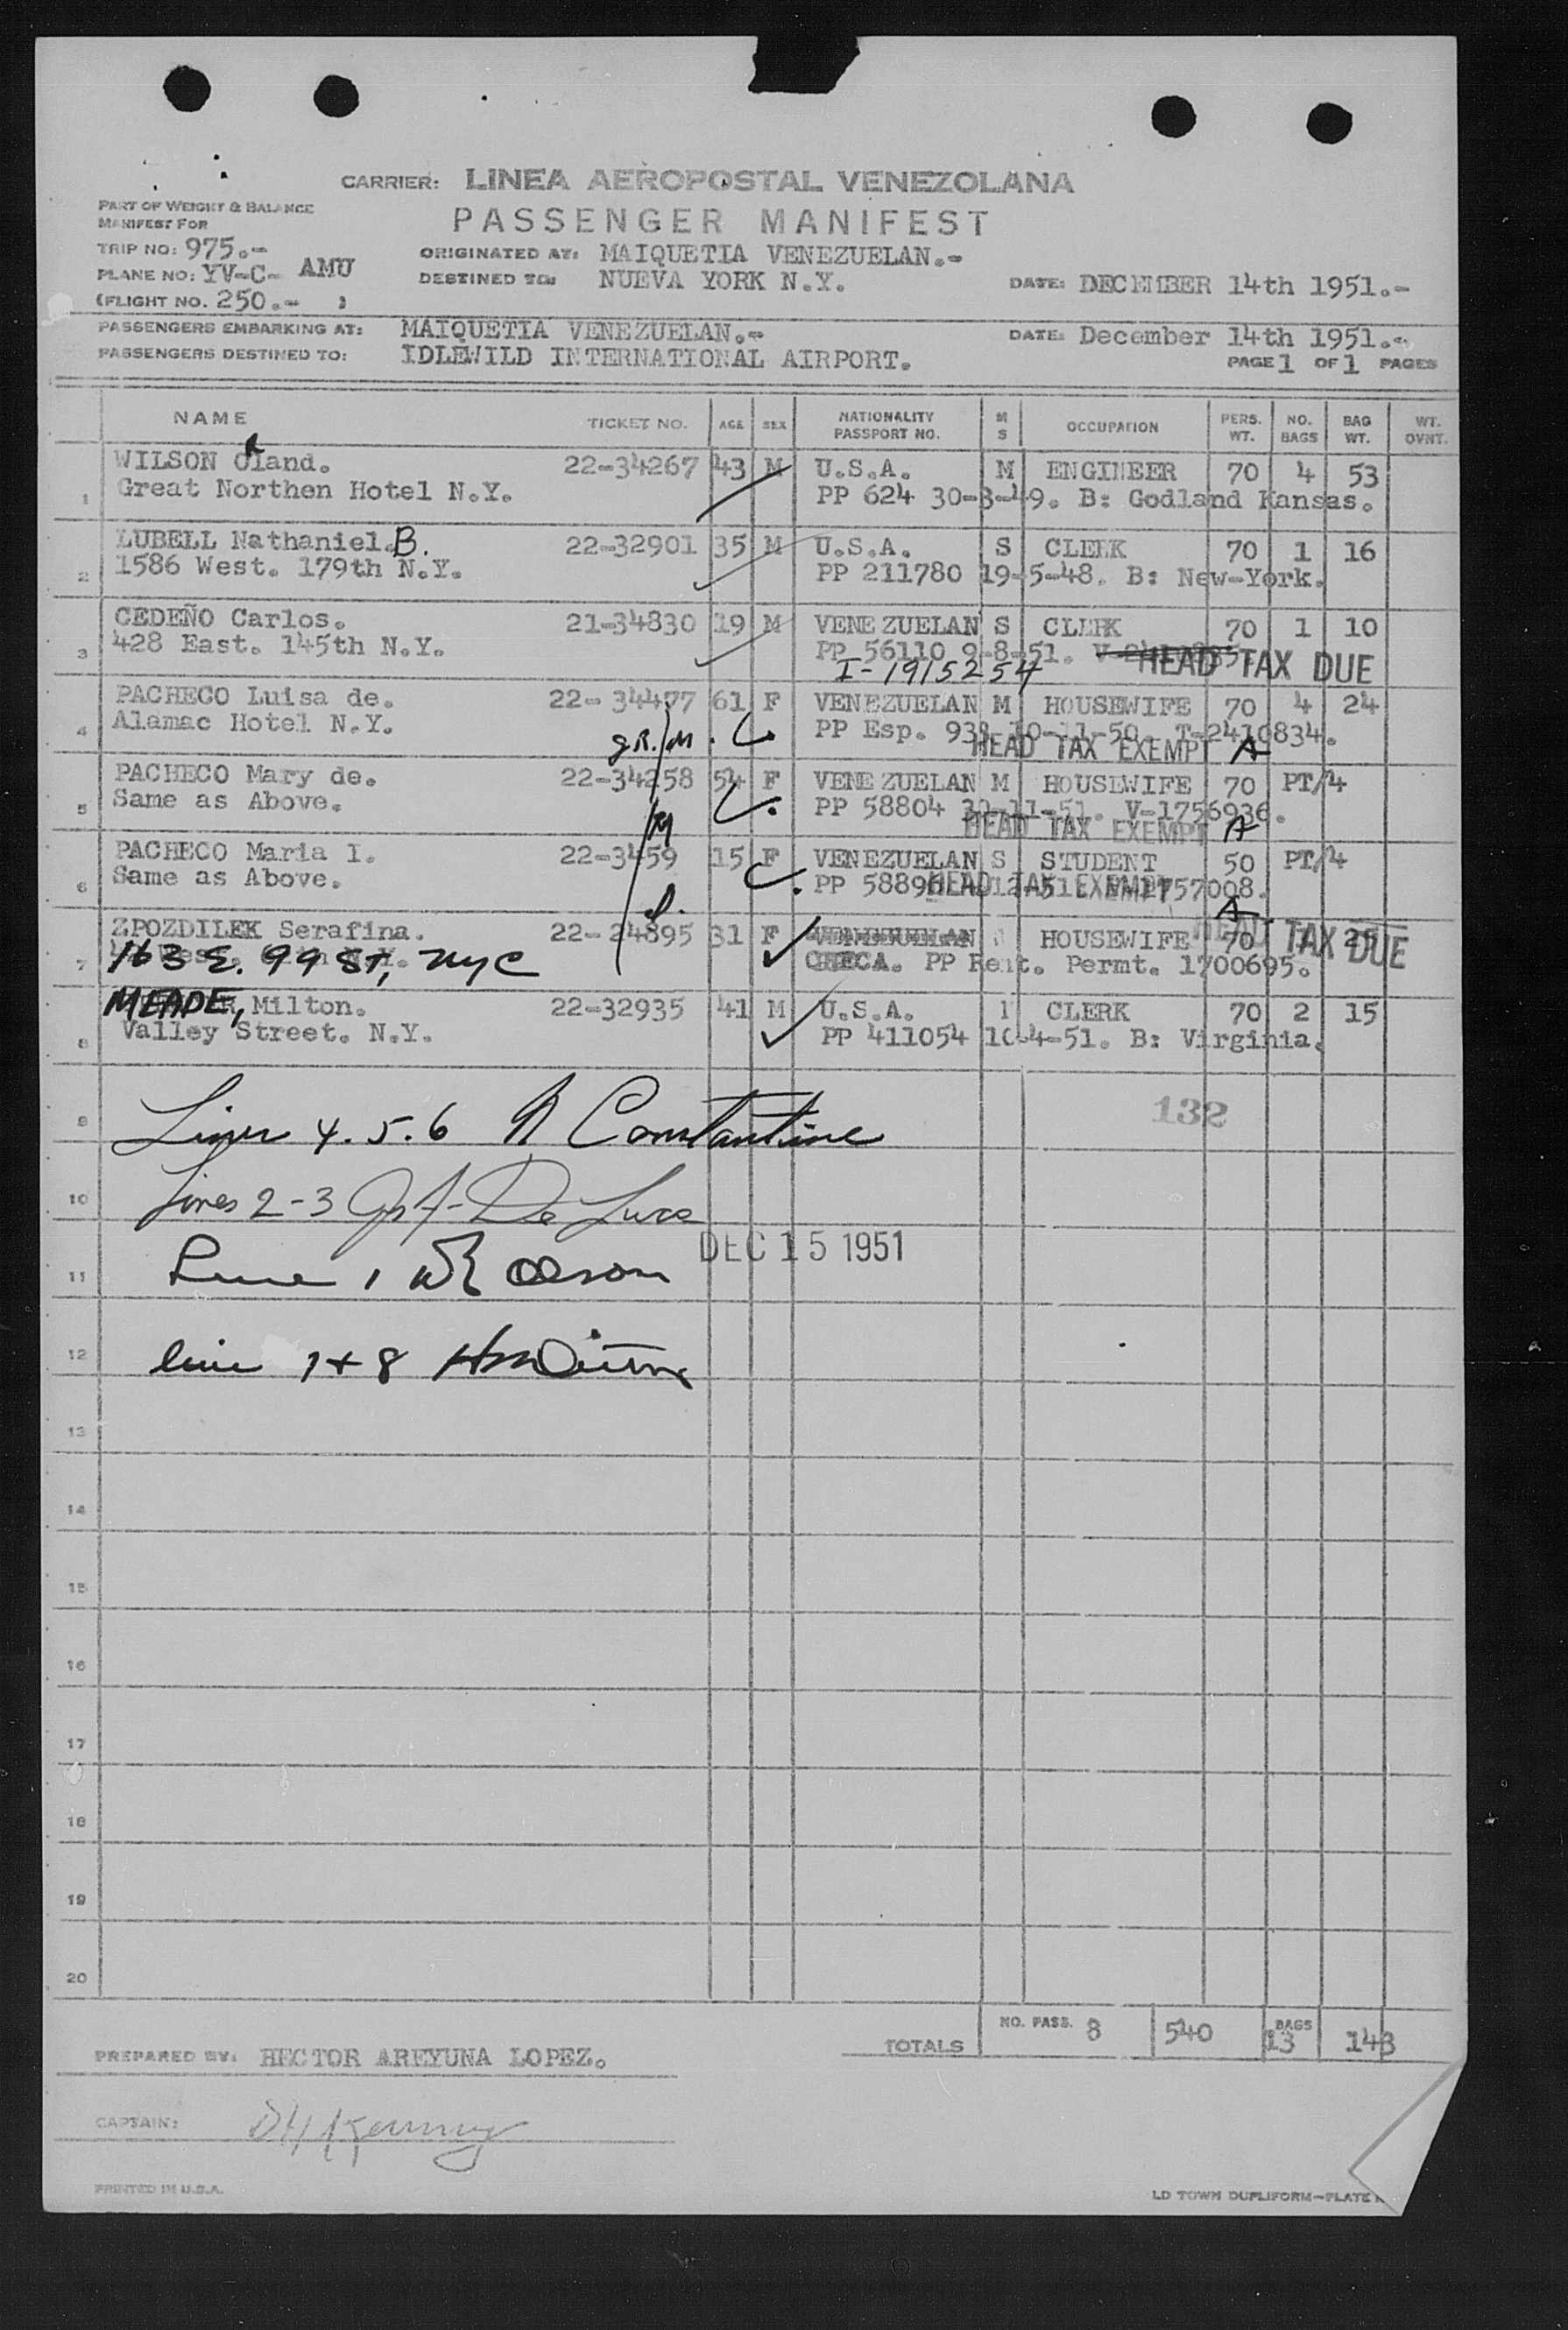 CARRIER: LINEA AEROPOSTAL VENEZOLANA
PART OF WEIGHT & BALANCE
MANIFEST FOR
PASSENGER MANIFEST
TRIP NO: 975.-
ORIGINATED AT: MAIQUETIA VENEZUELAN.-
PLANE NO: YV-C- AMU
DESTINED TO: NUEVA YORK N.Y.
DATE: DECEMBER 14th 1951.-
(FLIGHT NO. 250.- )
PASSENGERS EMBARKING AT: MAIQUETIA VENEZUELAN.-
DATE: December 14th 1951.-
PASSENGERS DESTINED TO: IDLEWILD INTERNATIONAL AIRPORT.
PAGE 1 OF 1 PAGES
NAME TICKET NO. AGE SEX NATIONALITY PASSPORT NO. M S OCCUPATION PERS. WT. NO. BAGS BAG WT. WT. OVNT.
WILSON Oland. 22-34267 43 M U.S.A. M ENGINEER 70 4 53
1 Great Northen Hotel N.Y. PP 624 30-3-49. B: Godland Kansas.
LUBELL Nathaniel. B. 22-32901 35 M U.S.A. S CLERK 70 1 16
2 1586 West. 179th N.Y. PP 211780 19-5-48. B: New-York.
CEDEÑO Carlos. 21-34830 19 M VENEZUELAN S CLERK 70 1 10
3 428 East. 145th N.Y. PP 56110 9-8-51.
I-1915254 HEAD TAX DUE
PACHECO Luisa de. 22-34477 61 F VENEZUELAN M HOUSEWIFE 70 4 24
4 Alamac Hotel N.Y. PP Esp. 10-11-50. T-2410834.
HEAD TAX EXEMPT A
PACHECO Mary de. 22-34258 54 F VENEZUELAN M HOUSEWIFE 70 PT/4
5 Same as Above. PP 58804 V-1756936.
HEAD TAX EXEMPT A
PACHECO Maria I. 22-3459 15 F VENEZUELAN S STUDENT 50 PT/4
6 Same as Above. PP HEAD TAX EXEMPT
A
ZPOZDILEK Serafina. 22-24895 31 F VENEZUELAN HOUSEWIFE 70 1 25
HEAD TAX DUE
7 163 E. 99 St, NYC CHECA. PP Rent. Permt. 1700695.
MEADE, Milton. 22-32935 41 M U.S.A. CLERK 70 2 15
8 Valley Street. N.Y. PP 411054 10-4-51. B: Virginia.
132
9 Lines 4.5.6 N Constantine
10 Lines 2-3 De Luca
DEC 15 1951
11 Line 1 Olson
12 line 7+8
13
14
15
16
17
18
19
20
TOTALS NO. PASS. 8 540 BAGS 13 143
PREPARED BY: HECTOR AREYUNA LOPEZ.
CAPTAIN:
PRINTED IN U.S.A.
LD TOWN DUPLIFORM-PLATE